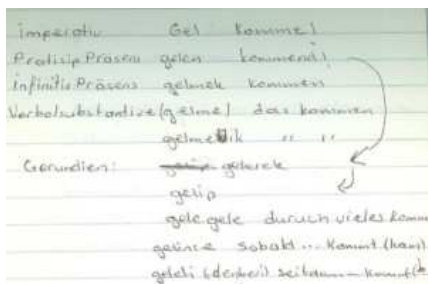 imperativ Gel komme!
Partisip Präsens gelen kommend
infinitiv Präsens gelmek kommen
Verbalsubstantive (gelme) das kommen
gelmeklik " "
Gerundien: gelerek
gelip
gele gele durch vieles komm
gelince sobald ... kommt (kam)
geleli (denberi) seitdem